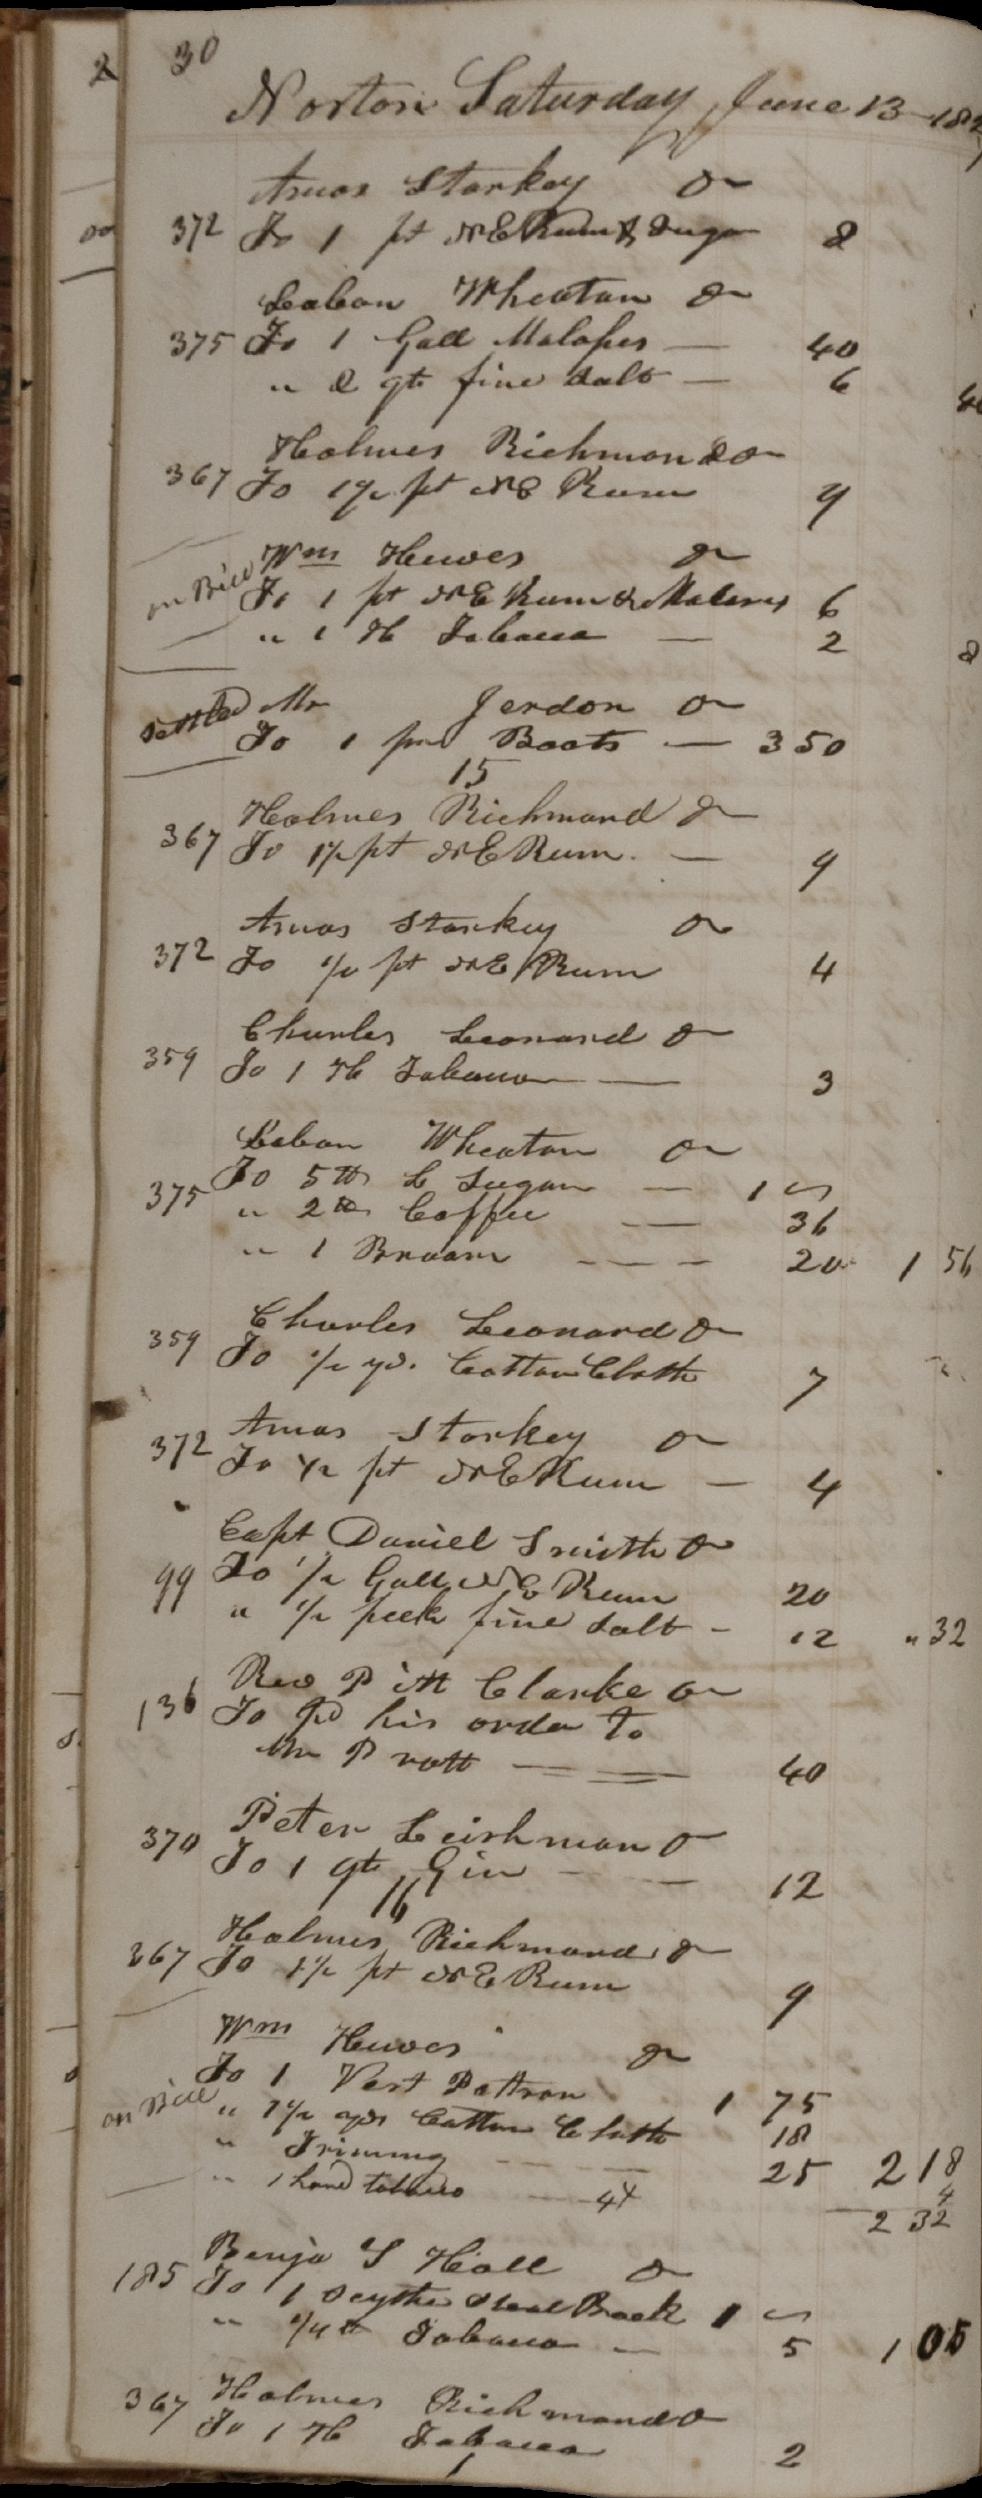 2
30
Norton Saturday June 13 182
Amos Starkey Dr
372 To 1 pt NE Rum & Sugar 8
Laban Wheaton Dr
375 To 1 Gall Molasses — 40
" 2 qts fine Salt — 6
Holmes Richmond Dr
367 To 1 1/2 pt NE Rum 9
Wm Hewes Dr
on Bill To 1 pt NE Rum & Molasses 6
" 1 Tobacco — 2
Settled Mr Jerdon Dr
To 1 pr Boots — 3 50
15
Holmes Richmond Dr
367 To 1 1/2 pt NE Rum. — 9
Amos Starkey Dr
372 To 1/2 pt NE Rum 4
Charles Leonard Dr
359 To 1 Tobacco — 3
Laban Wheaton Dr
375 To 5 lb Sugar — 1
" 2 lb Coffee — 36
" 1 Broom — — — 20 1 56
Charles Leonard Dr
359 To 1/2 yd. Cotton Cloth 7
Amos Starkey Dr
372 To 1/2 pt NE Rum — 4
Capt Daniel Smith Dr
99 To 1/2 Gall NE Rum 20
" 1/2 peck fine Salt - 12 " 32
Rev Pitt Clarke Dr
136 To Pd his order to
Mr Pratt — 40
Peter Leishman Dr
370 To 1 qt Gin — 12
16
Holmes Richmond Dr
367 To 1 1/2 pt NE Rum 9
Wm Hewes Dr
To 1 Vest Pattron 1 75
on Bill " 1 1/2 yds Cotton Cloth 18
" Triming — 25 2 18
" 1 hand tobacco — 4 4
2 32
Benja S Hall Dr
185 To 1 Scythe Steel Back 1
" 1/4 lb Tobacco — 5 1 05
Holmes Richmond Dr
367 To 1 Tobacco 2
1